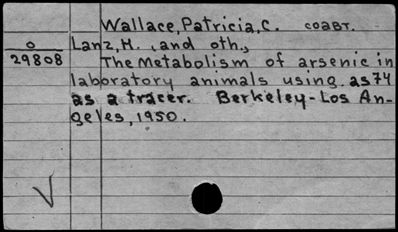 Wallace, Patricia, C. соавт.
О
29808
Lanz, H., and oth.,
The Metabolism of arsenic in
laboratory animals using as74
as a tracer. Berkeley-Los An-
geles, 1950.
V